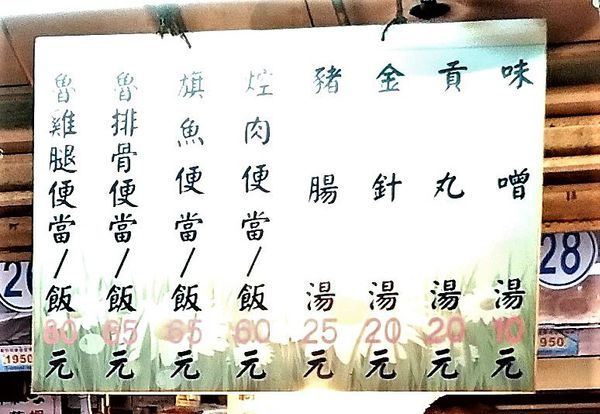 味噌湯10元
貢丸湯20元
金針湯20元
豬腸湯25元
焢肉便當/飯60元
旗魚便當/飯65元
魯排骨便當/飯65元
魯雞腿便當/飯80元
26
28
1950
950